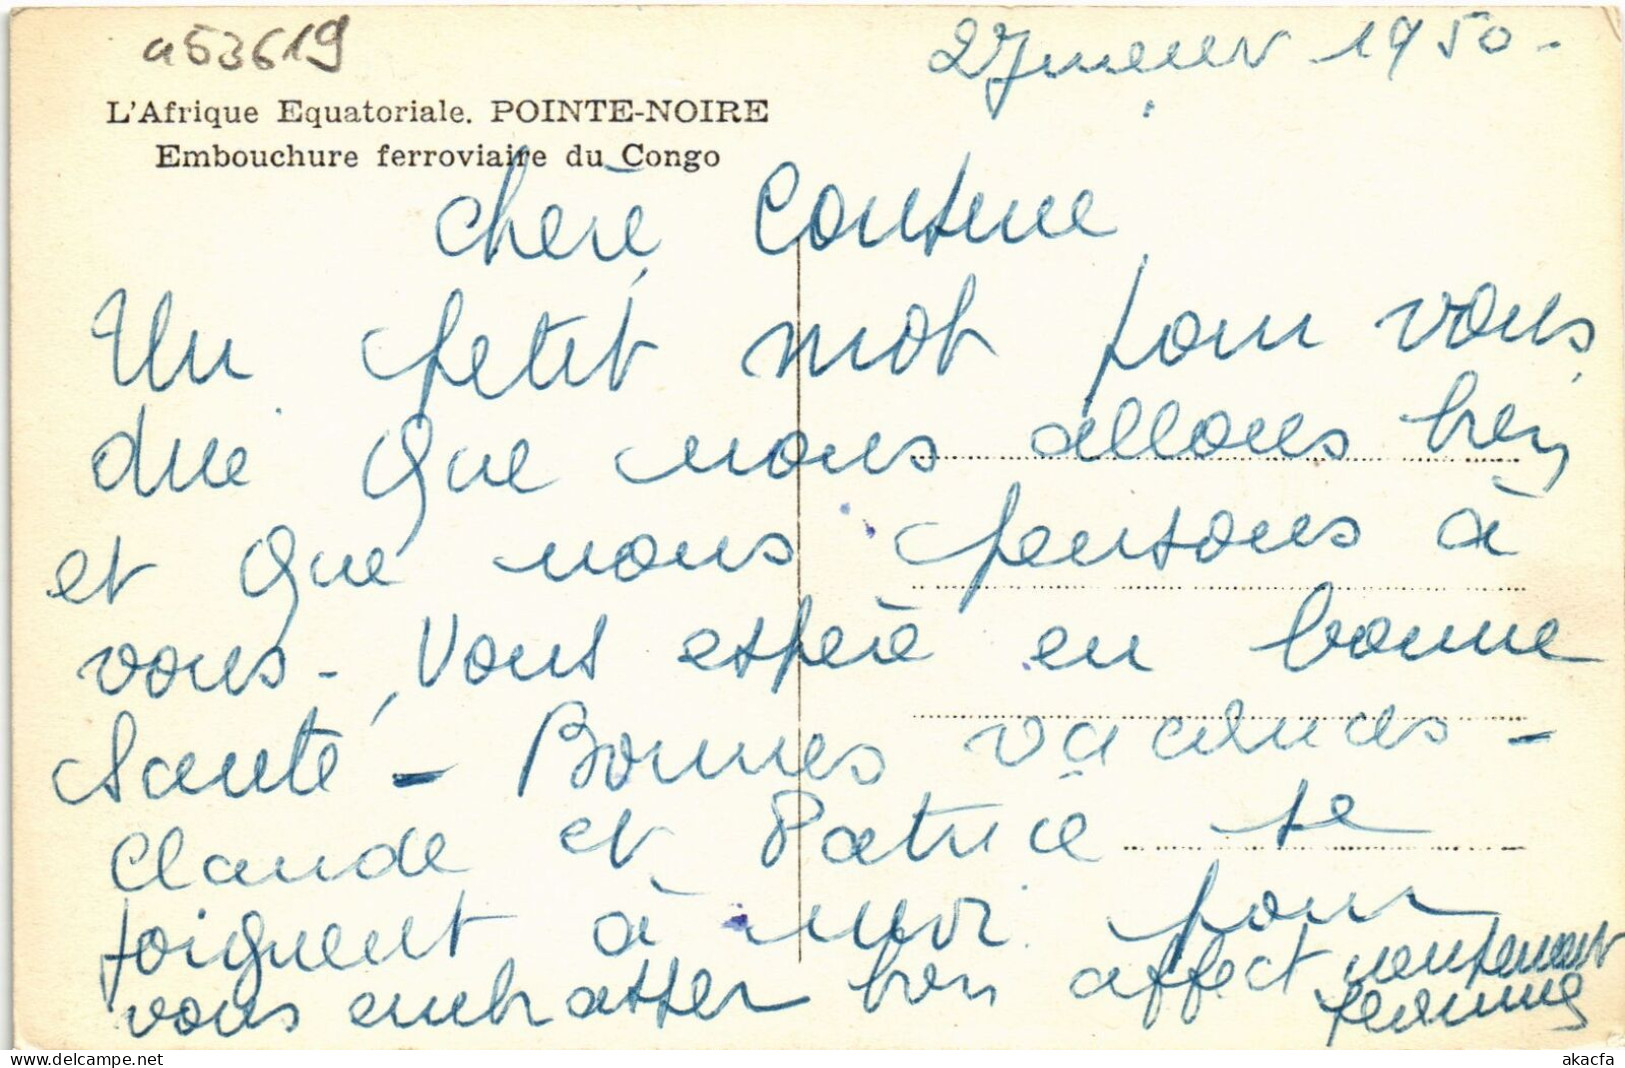 a53619
27 janvier 1950 -
L'Afrique Equatoriale. POINTE-NOIRE
Embouchure ferroviaire du Congo
Chère Cousine
Un petit mot pour vous
dire que nous allons bien
et que nous pensons à
vous - Vous espère en bonne
Santé - Bonnes vacances -
Claude et Patrice se
joignent à moi pour
vous embrasser bien affectueusement
akacfa
www.delcampe.net